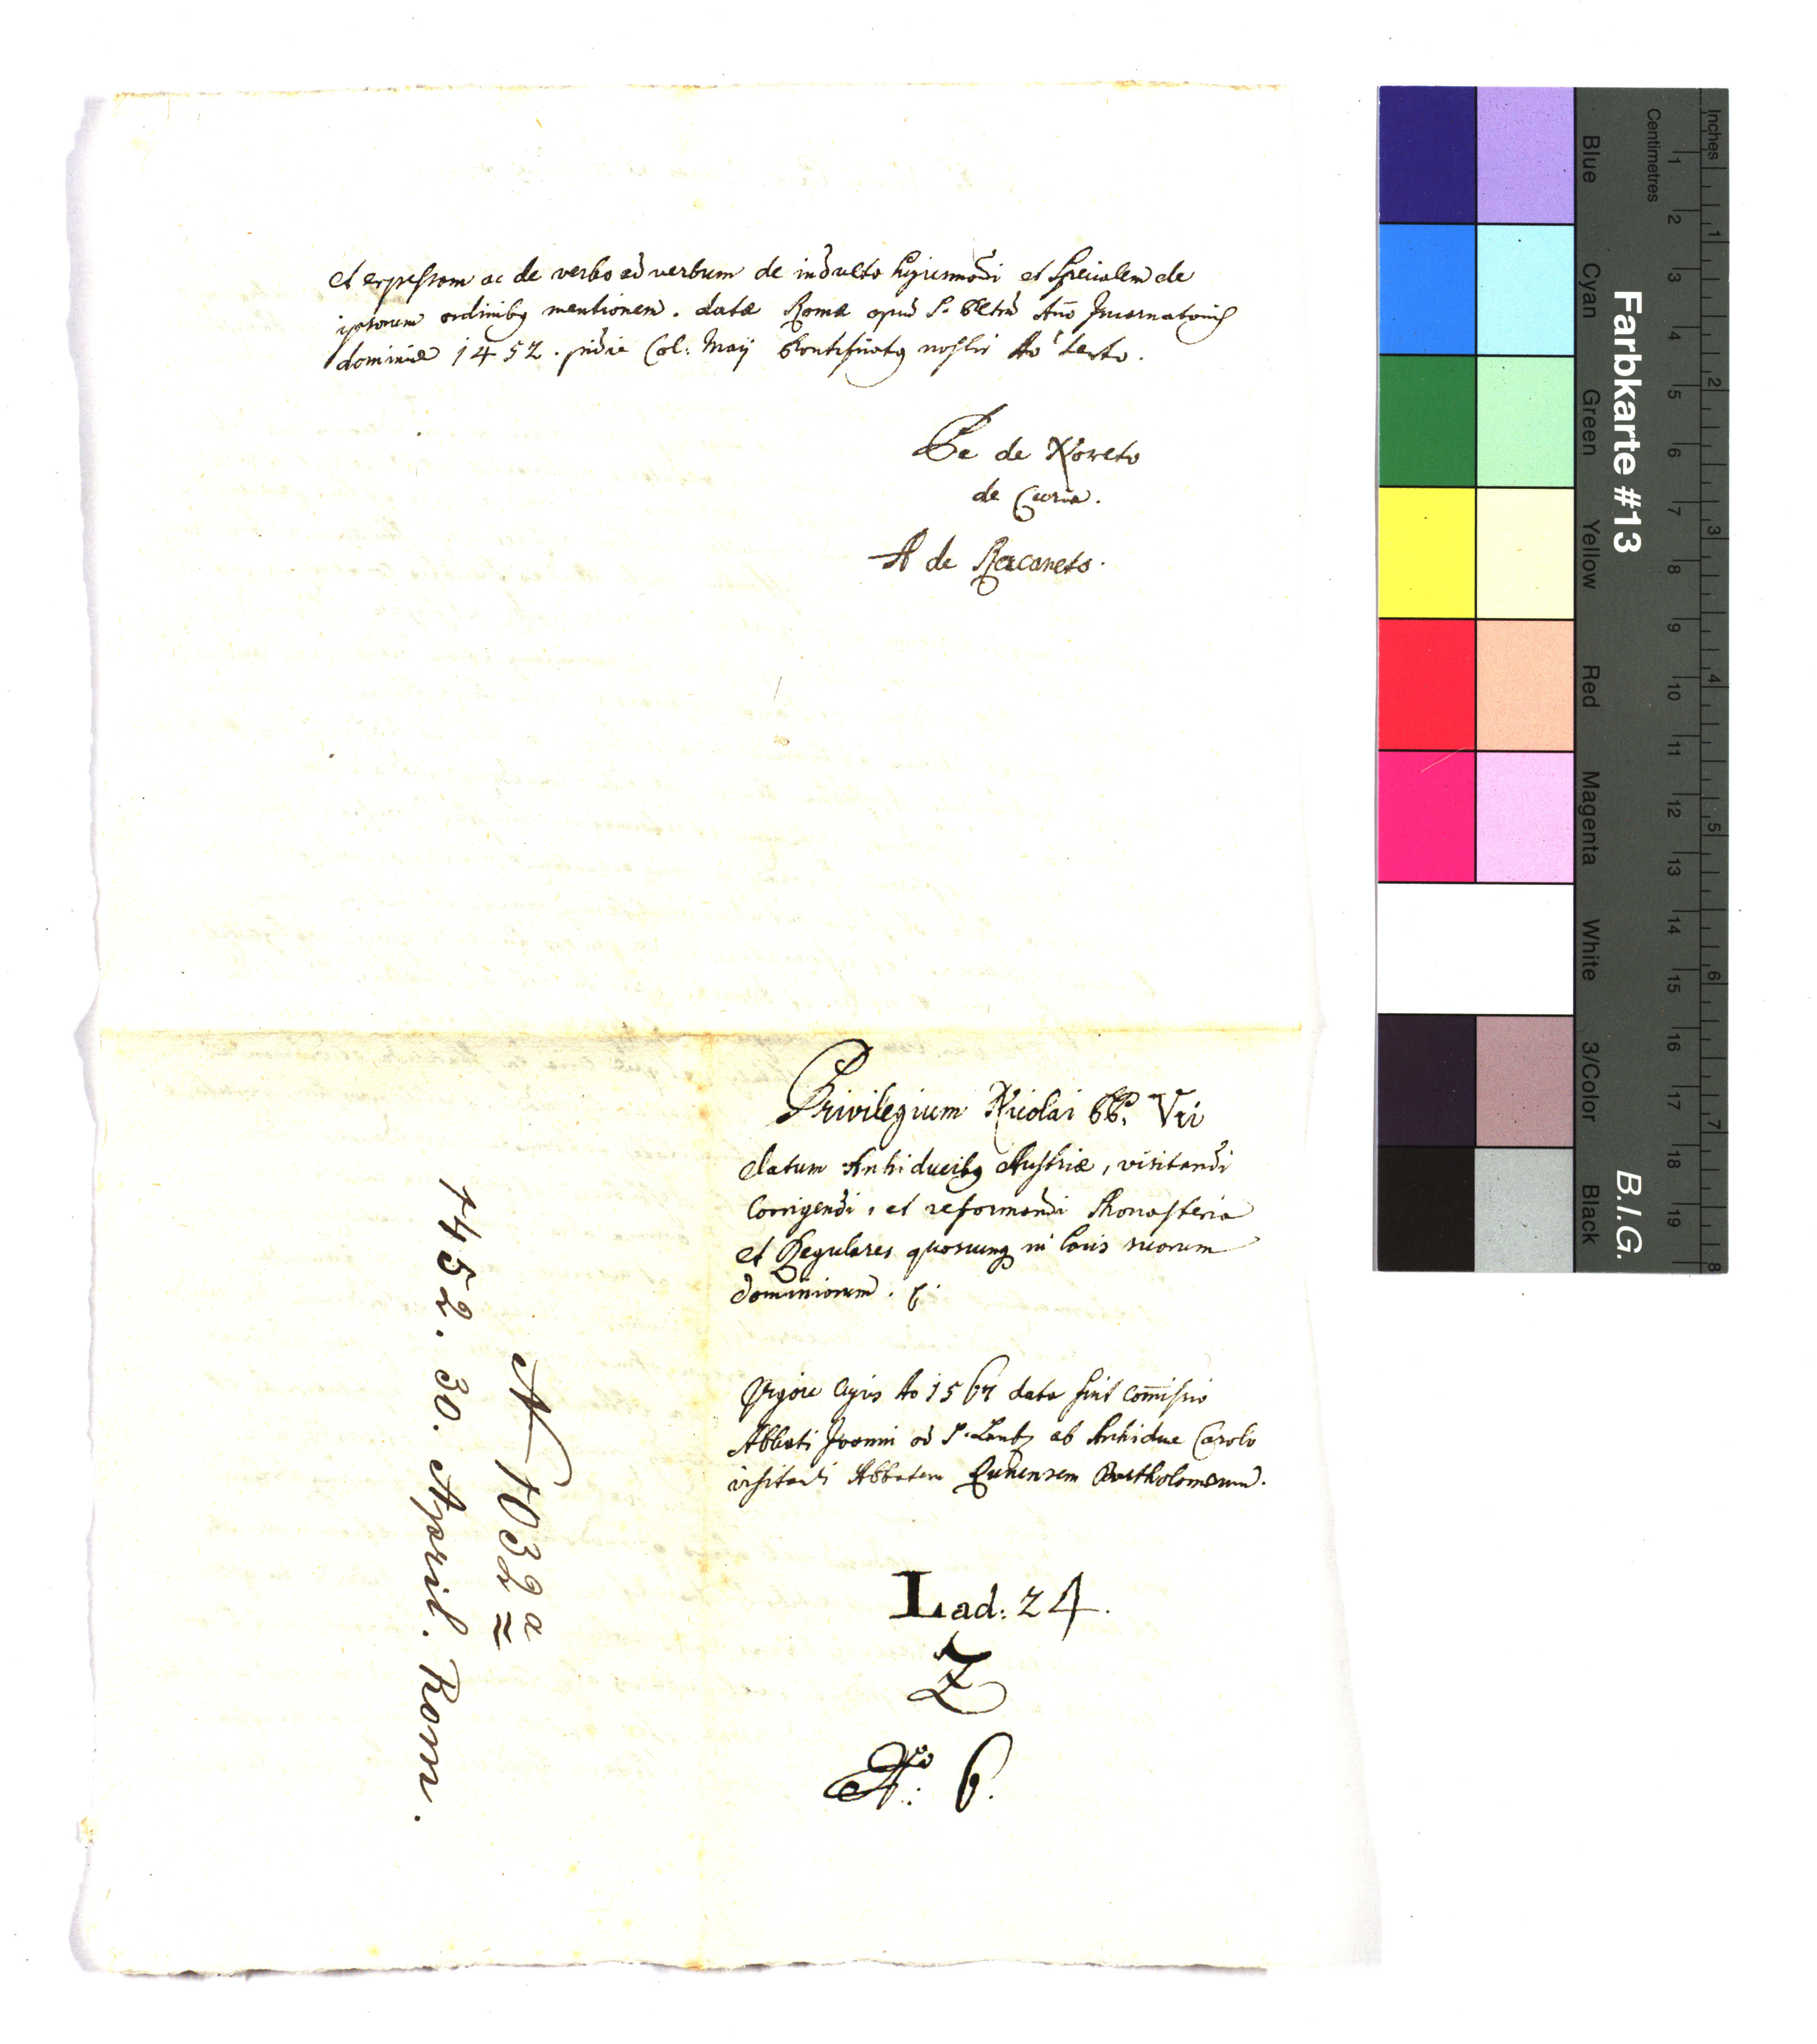 et expressam ac de verbo ad verbum de indulto hujusmodi et specialem de
ipsorum ordinibq mentionem. datæ Romæ apud S. Petrum Año Incarnationis
dominicæ 1452. pridie Cal: Maij Pontificatq nostri Ao Sexto.
Pe de Noxeto
de Curia.
A de Racaneto.
Privilegium Nicolai PP. Vti
datum Archiducibq Austriæ, visitandi
Corrigendi, et reformandi Monasteria
et Regulares quoscunq in locis suorum
dominiorum.
Vigore cujus Ao 1567 data fuit Com̄issio
Abbati Joanni ad S. Lamb. ab Archiduce Carolo
visitandi Abbatem Runensem Bartholomæum.
Lad: 24.
Z
No: 6.
N 1032 a
1452. 30. April. Rom.
Farbkarte #13
B.I.G.
Blue
Cyan
Green
Yellow
Red
Magenta
White
3/Color
Black
Centimetres
1 2 3 4 5 6 7 8 9 10 11 12 13 14 15 16 17 18 19
Inches
1 2 3 4 5 6 7 8